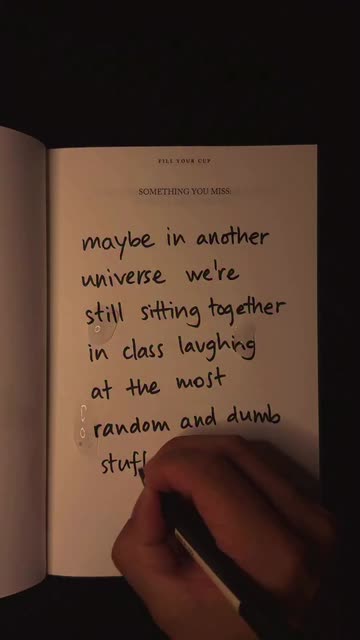 FILL YOUR CUP
SOMETHING YOU MISS:
maybe in another
universe we're
still sitting together
in class laughing
at the most
random and dumb
stuff